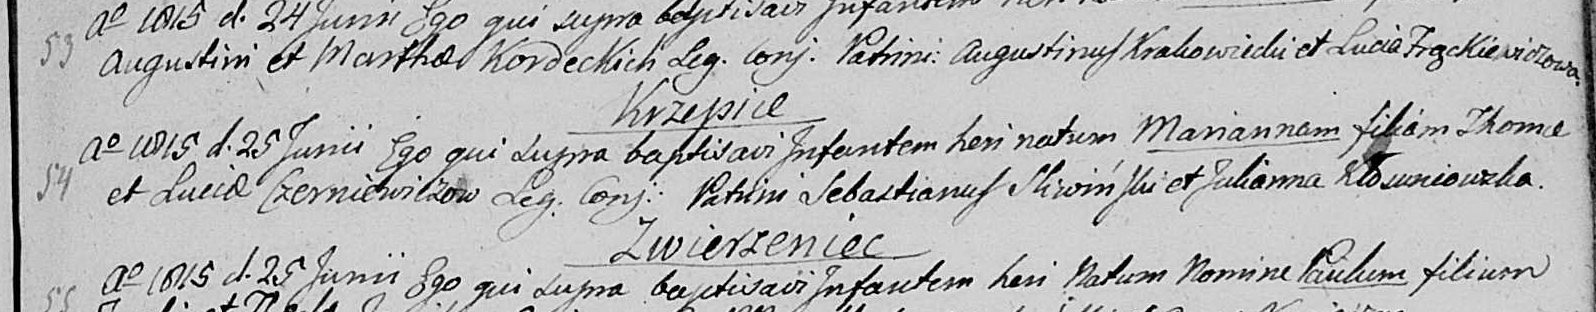 Aº 1815 d. 24 Junii Ego qui supra baptisavi Infantem heri
53 Augustini et Marthæ Kordeckich Leg. Conj. Patrini: Augustinus Krakowiecki et Lucia Frąckiewiczowa.
Krzepice
Aº 1815 d. 25 Junii Ego qui supra baptisavi Infantem heri natum Mariannam filiam Thomæ
54 et Luciæ Czerniewiczow Leg. Conj: Patrini Sebastianus Sliwiński et Julianna
Zwierzeniec
Aº 1815 d. 25 Junii Ego qui supra baptisavi Infantem heri Natum Nomine Paulum filium
55